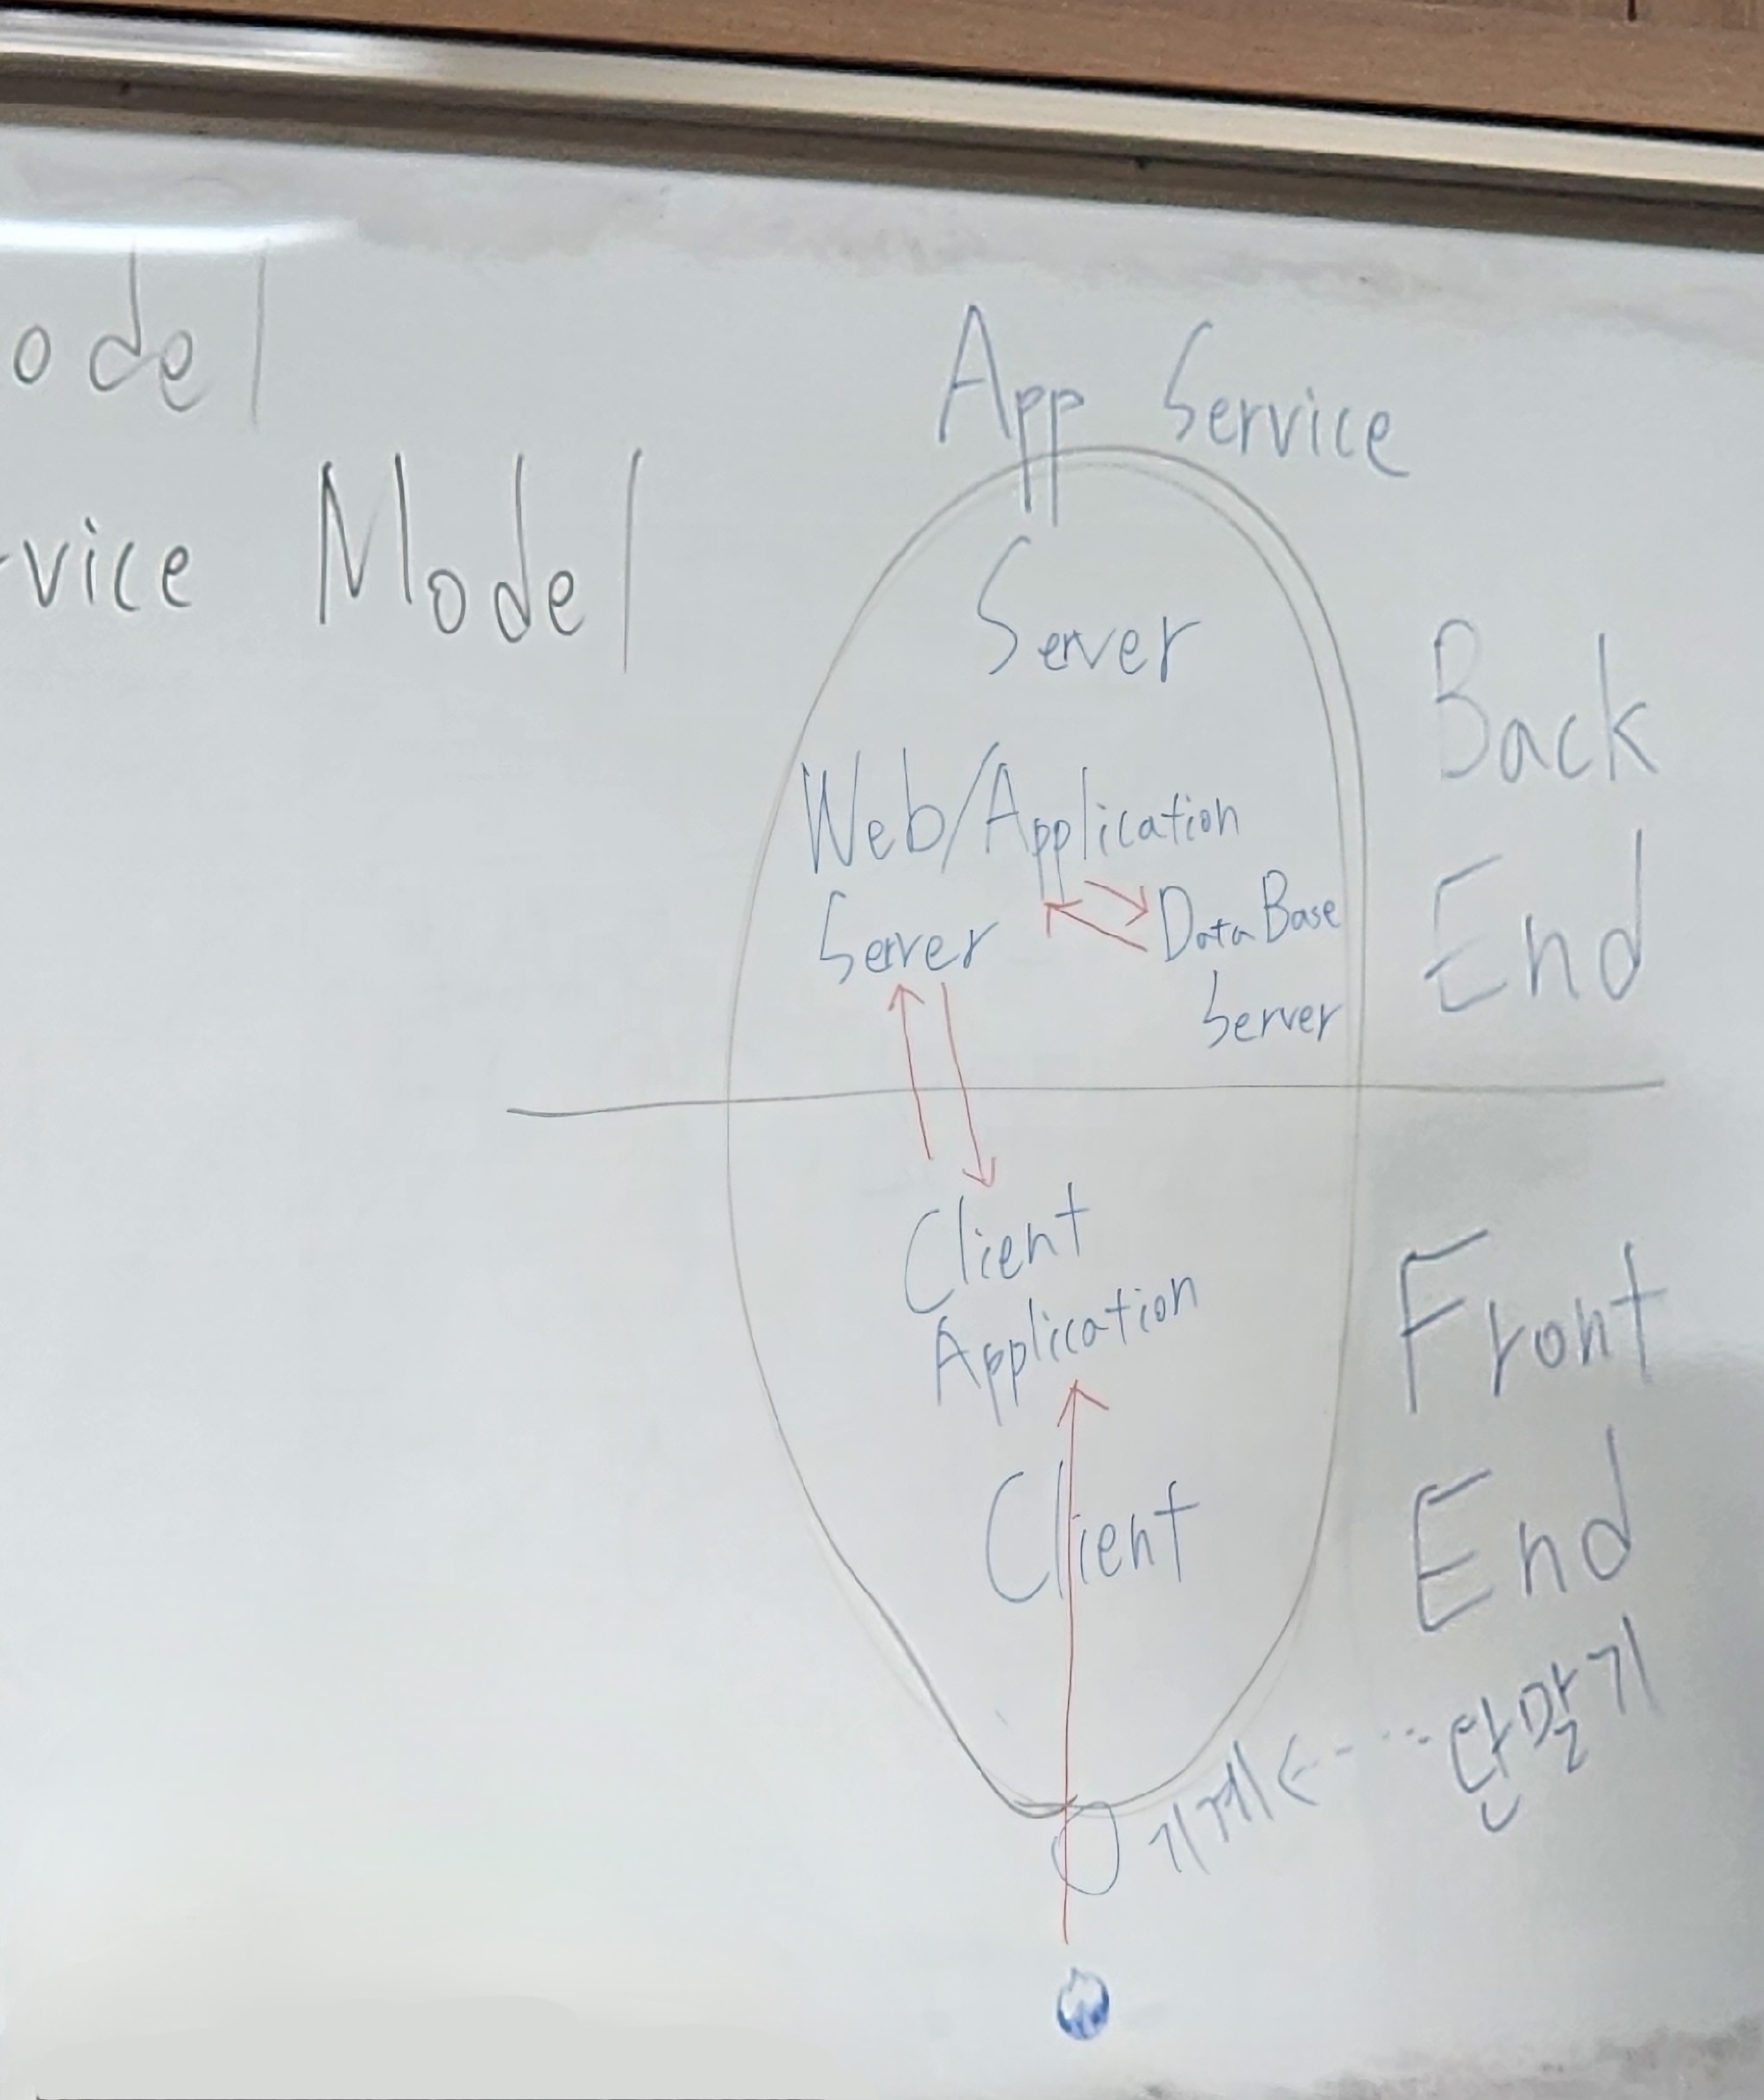 odel
vice Model
App Service
Server
Web/Application
Server
DataBase
Server
Back
End
Client
Application
Client
Front
End
단말기
기계